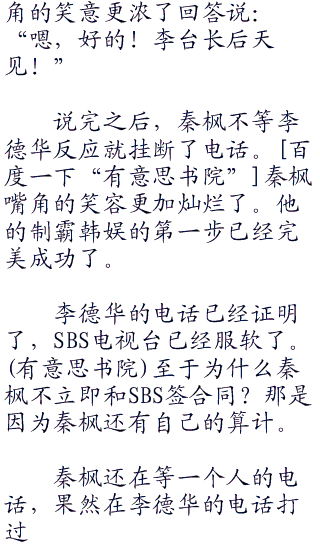 角的笑意更浓了回答说：
“嗯，好的！李台长后天
见！”
说完之后，秦枫不等李
德华反应就挂断了电话。[百
度一下“有意思书院”]秦枫
嘴角的笑容更加灿烂了。他
的制霸韩娱的第一步已经完
美成功了。
李德华的电话已经证明
了，SBS电视台已经服软了。
(有意思书院)至于为什么秦
枫不立即和SBS签合同？那是
因为秦枫还有自己的算计。
秦枫还在等一个人的电
话，果然在李德华的电话打
过